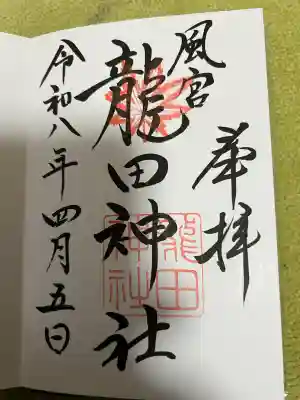 奉拝
風宮
龍田神社
龍田神社
令和八年四月五日